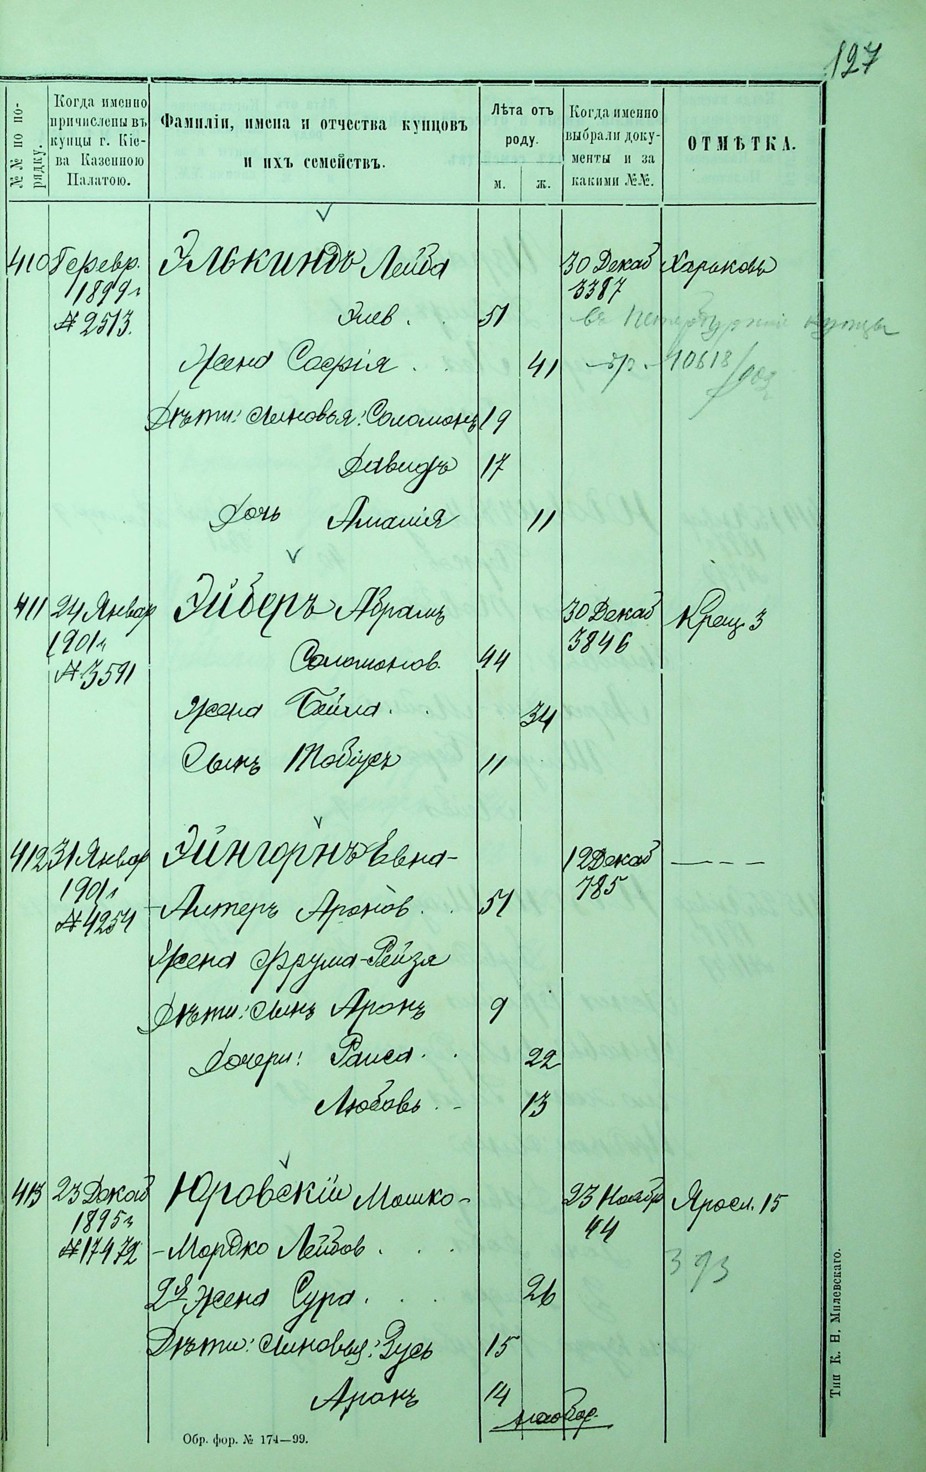 127
№№ по по-
рядку.
Когда именно
причислены въ
купцы г. Кіе-
ва Казенною
Палатою.
Фамиліи, имена и отчества купцовъ
и ихъ семействъ.
Лѣта отъ
роду.
м. ж.
Когда именно
выбрали доку-
менты и за
какими №№.
ОТМѢТКА.
410 7 Февр. Элькиндъ Лейба 30 Декаб Харьковъ
1899 г 3387
№ 2513. Элев. 51 въ Петербургскіе купцы
Жена Софія 41 10618
Дѣти: сыновья: Соломонъ 19
Давидъ 17
Дочь Амалія 11
411 24 Январ Эйберъ Абрамъ 30 Декаб Крещ. 3
1901 г 3846
№ 3591 Соломонов. 44
Жена Бейла 34
Сынъ Тобіусъ 11
412 31 Январ Эйнгорнъ Евна- 12 Декаб ————
1901 г 785
№ 4254 -Алтеръ Аронов. 51
Жена Фрума-Рейзя
Дѣти: сынъ Аронъ 9
Дочери: Раиса 22
Любовь 13
413 23 Декаб Юровскій Мошко- 23 Ноябр Яросл. 15
1895 г 44
№ 17472 -Мордко Лейбов. 393
2я Жена Сура 26
Дѣти: сыновья: Зусь 15
Аронъ 14
Обр. фор. № 174—99.
Тип К. Н. Милевскаго.